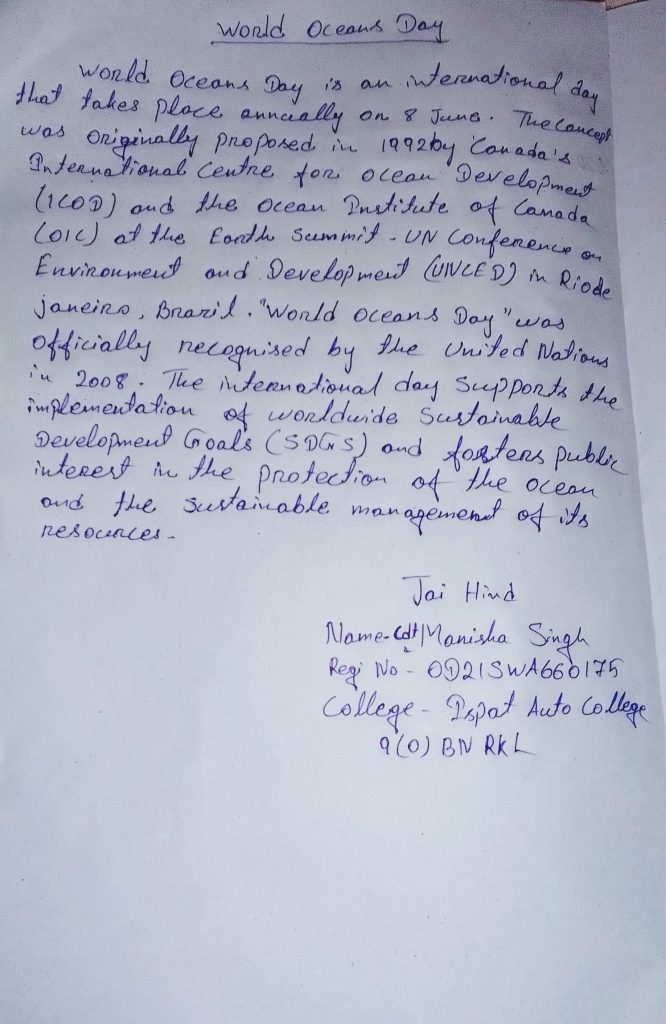 World Oceans Day
World Oceans Day is an international day
that takes place annually on 8 June. The concept
was originally proposed in 1992 by Canada's
International Centre for ocean Development
(ICOD) and the Ocean Institute of Canada
(OIC) at the Earth Summit - UN Conference on
Environment and Development (UNCED) in Riode
janeiro, Brazil. "World Oceans Day" was
officially recognised by the United Nations
in 2008. The international day supports the
implementation of worldwide Sustainable
Development Goals (SDGS) and fosters public
interest in the protection of the ocean
and the sustainable management of its
resources.
Jai Hind
Name- Cdt/Manisha Singh
Regi No - OD21SWA660175
College - Ispat Auto College
9(O) BN RKL